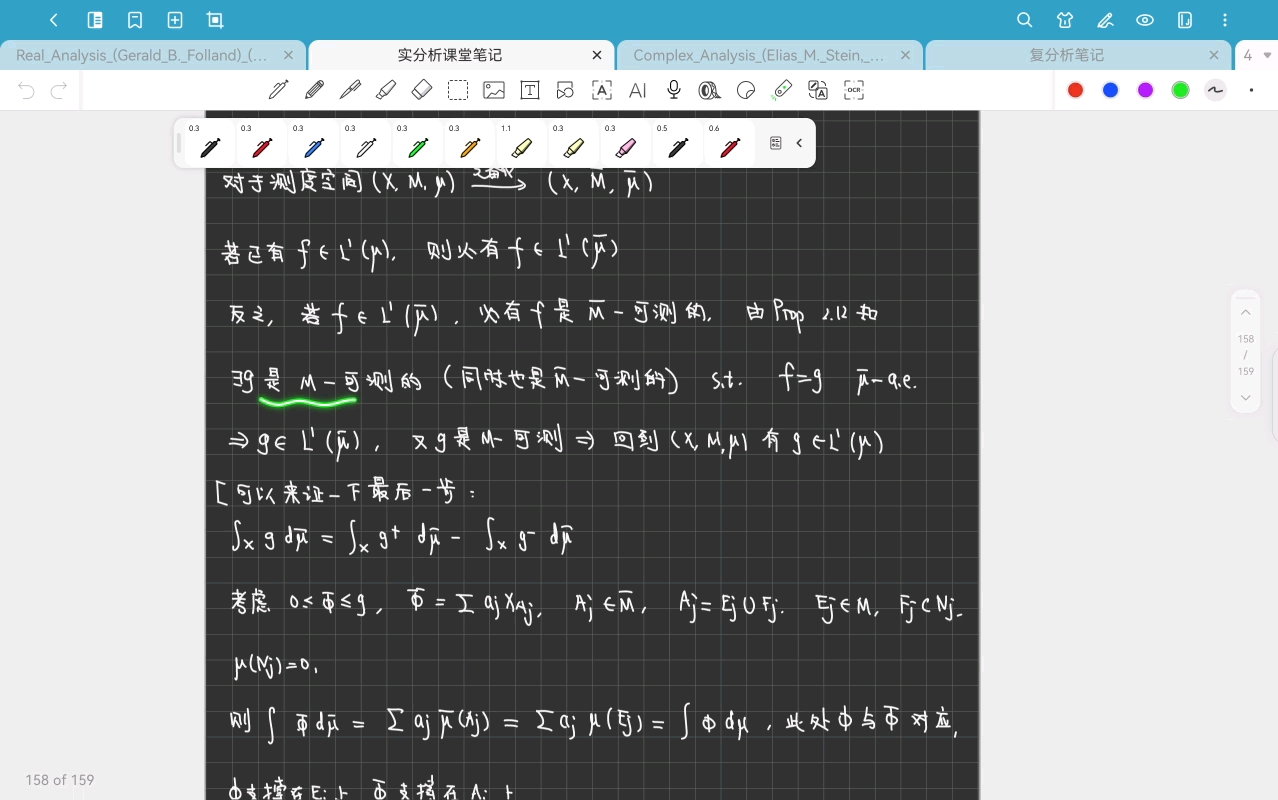 Real_Analysis_(Gerald_B._Folland)_(...
实分析课堂笔记
Complex_Analysis_(Elias_M._Stein,_...
复分析笔记
4
T
A
AI
OCR
0.3 0.3 0.3 0.3 0.3 0.3 1.1 0.3 0.3 0.5 0.6
对于测度空间 (X, M, μ) → (X, M̄, μ̄)
若已有 f ∈ L¹(μ), 则必有 f ∈ L¹(μ̄)
反之, 若 f ∈ L¹(μ̄), 必有 f 是 M̄-可测的, 由 Prop 2.12 知
∃g 是 M-可测的 (同时也是 M̄-可测的) s.t. f=g μ̄-a.e.
⇒ g ∈ L¹(μ̄), 又 g 是 M-可测 ⇒ 回到 (X, M, μ) 有 g ∈ L¹(μ)
[可以来证一下最后一步:
∫ₓ g dμ̄ = ∫ₓ g⁺ dμ̄ - ∫ₓ g⁻ dμ̄
考虑 0 ≤ Φ̄ ≤ g, Φ̄ = Σ aj χAj, Aj ∈ M̄, Aj = Ej ∪ Fj. Ej ∈ M, Fj ⊂ Nj.
μ(Nj)=0.
则 ∫ Φ̄ dμ̄ = Σ aj μ̄(Aj) = Σ aj μ(Ej) = ∫ Φ dμ, 此处 Φ 与 Φ̄ 对应,
Φ支撑在Ej上 Φ̄支撑在Aj上
158
/
159
158 of 159